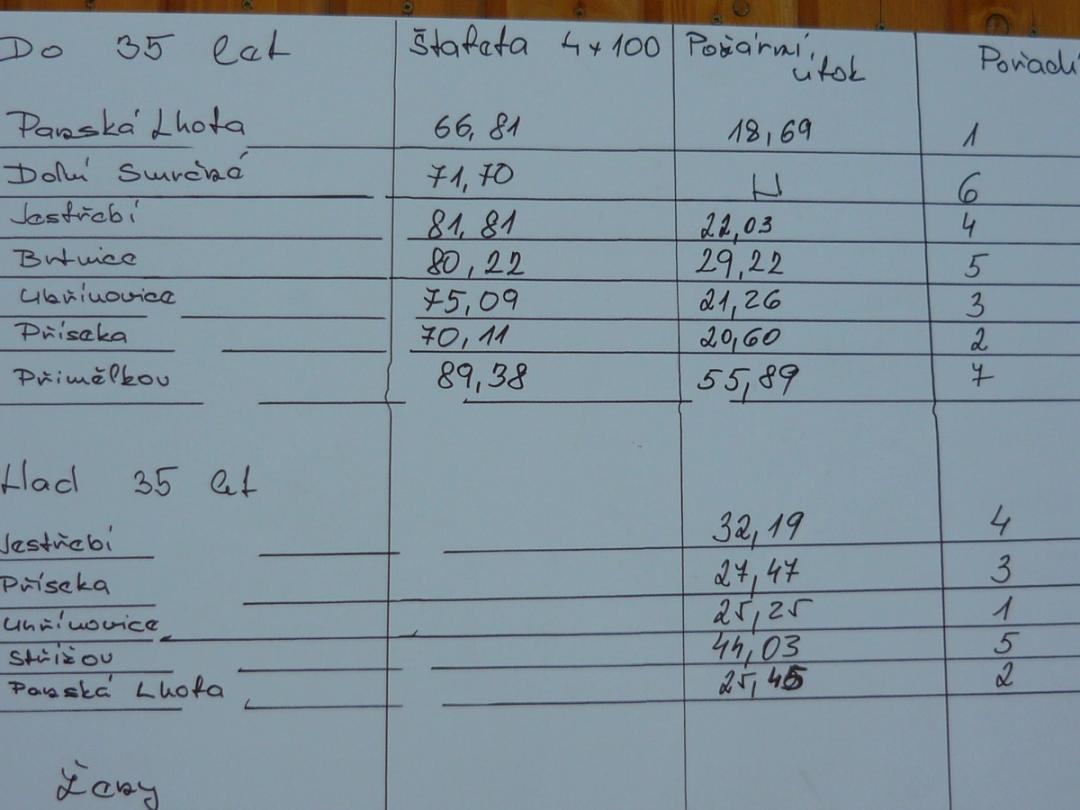 Do 35 let Štafeta 4x100 Požární útok Pořadí
Panská Lhota 66,81 18,69 1
Dolní Smrčné 71,70 N 6
Jestřebí 81,81 22,03 4
Brtnice 80,22 29,22 5
Uhřínovice 75,09 21,26 3
Příseka 70,11 20,60 2
Přímělkov 89,38 55,89 7
Nad 35 let
Jestřebí 32,19 4
Příseka 27,47 3
Uhřínovice 25,25 1
Střížov 44,03 5
Panská Lhota 25,45 2
Ženy